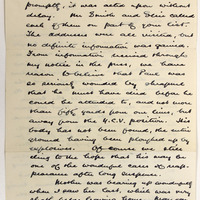 promptly, it was acted upon without
delay. Mr Smith and Elsie called
on of them on part of your list.
The addresses were all visited, but
no definite information was gained.
From information received through
my notice in the press, we have
reason to believe that Paul was
so seriously wounded by shrapnel
that he must have died before he
could be attended to, and not more
than fifty yards from our lines, but
away from the position. His
body has not been found, the entire
ground having been ploughed up by
explosives. Of course we still
cling to the hope that his may be
one of the wonderful cases of reap-
pearance after long suspense.
Mother was bearing up wonderfully
when I saw her last, which was very